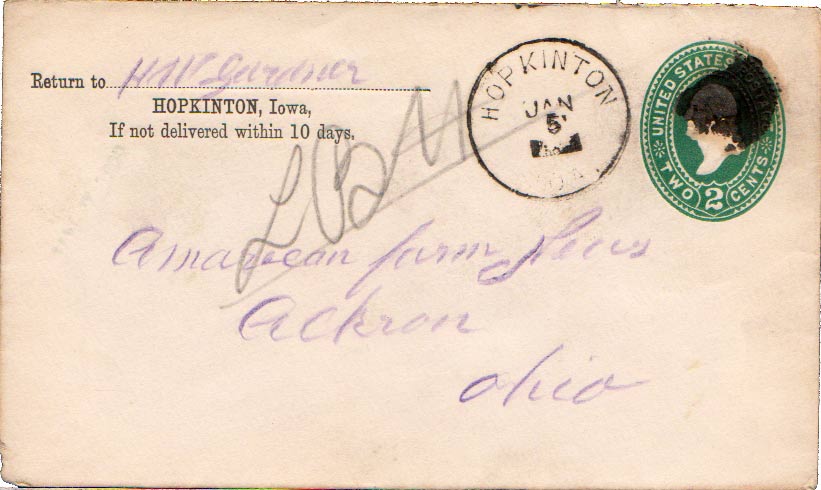 Return to H W Gardner
HOPKINTON, Iowa,
If not delivered within 10 days.
HOPKINTON
JAN
5
UNITED STATES
TWO 2 CENTS
Amarecan farm News
Ackron
Ohio